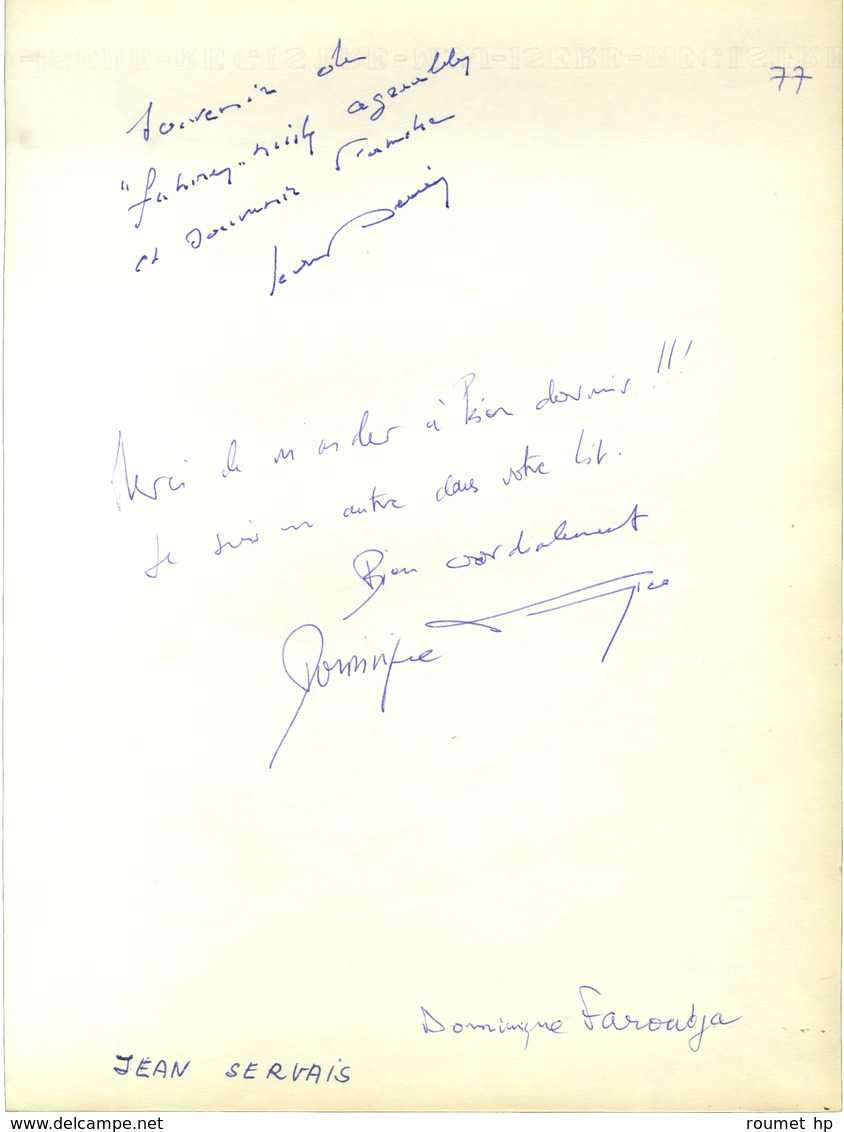 77
Souvenir de
"funny" nuits agréables
et souvenir
Merci de m'aider à Bien dormir !!!
Je suis un autre dans votre lit.
Bien cordialement
Dominique
Dominique Faroudja
JEAN SERVAIS
www.delcampe.net
roumet hp